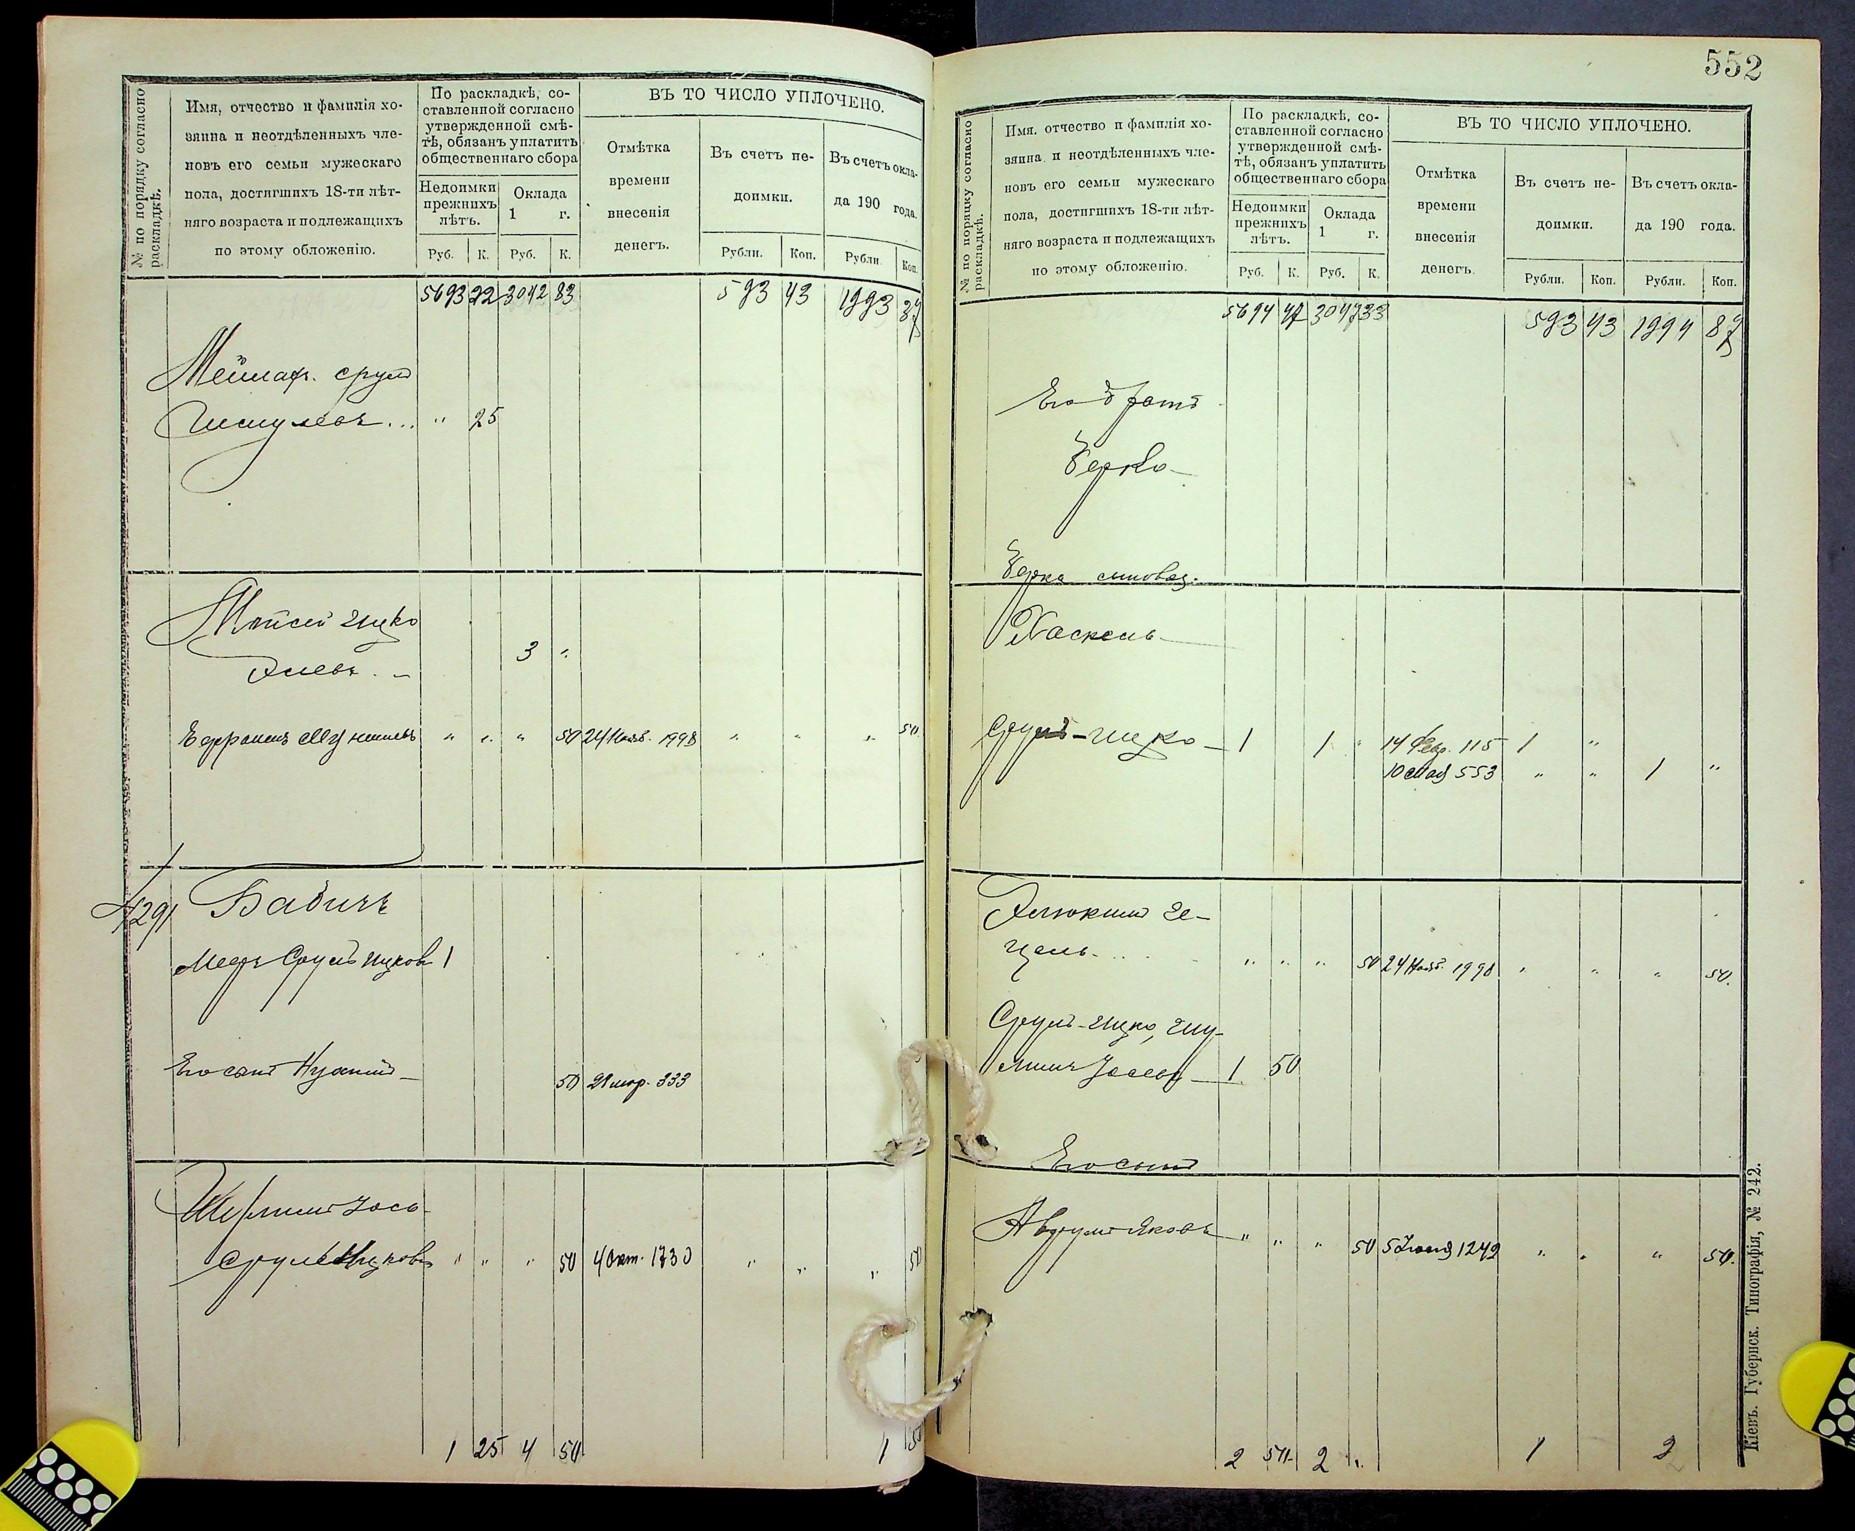 № по порядку согласно раскладкѣ.
Имя, отчество и фамилія хо-
зяина и неотдѣленныхъ чле-
новъ его семьи мужескаго
пола, достигшихъ 18-ти лѣт-
няго возраста и подлежащихъ
по этому обложенію.
По раскладкѣ, со-
ставленной согласно
утвержденной смѣ-
тѣ, обязанъ уплатить
общественнаго сбора
Недоимки
прежнихъ
лѣтъ.
Оклада
1 г.
Руб. К. Руб. К.
ВЪ ТО ЧИСЛО УПЛОЧЕНО.
Отмѣтка
времени
внесенія
денегъ.
Въ счетъ не-
доимки.
Въ счетъ окла-
да 190 года.
Рубли. Коп. Рубли Коп.
5693 22 3042 83 593 43 1993 37
Срулъ
" 25
Ицко
3 "
" " " 50 24 Нояб. 1998 " " " 50
1291 Бабичъ
Меэръ Срулъ Ицковъ 1
Его сынъ
50 21 мар. 333
Іось
Срулъ Ицковъ " " " 50 4 Окт. 1730 " " " 50
1 25 4 50 1 50
552
№ по порядку согласно раскладкѣ.
Имя, отчество и фамилія хо-
зяина и неотдѣленныхъ чле-
новъ его семьи мужескаго
пола, достигшихъ 18-ти лѣт-
няго возраста и подлежащихъ
по этому обложенію.
По раскладкѣ, со-
ставленной согласно
утвержденной смѣ-
тѣ, обязанъ уплатить
общественнаго сбора
Недоимки
прежнихъ
лѣтъ.
Оклада
1 г.
Руб. К. Руб. К.
ВЪ ТО ЧИСЛО УПЛОЧЕНО.
Отмѣтка
времени
внесенія
денегъ.
Въ счетъ не-
доимки.
Въ счетъ окла-
да 190 года.
Рубли. Коп. Рубли. Коп.
5694 47 3047 33 593 43 1994 87
Его братъ
Берко
Берка сыновья.
Хаскель
Срулъ-Ицко 1 1 " 14 Февр. 115 1 "
10 Мая 553 " " 1 "
" " " 50 24 Нояб. 1998 " " " 50.
Срулъ-Ицко,
1 50
Его сынъ
Аврумъ Яковъ " " " 50 5 Іюля 1242 " " " 50.
2 50 2 " 1 2
Кіевъ. Губернск. Типографія, № 242.